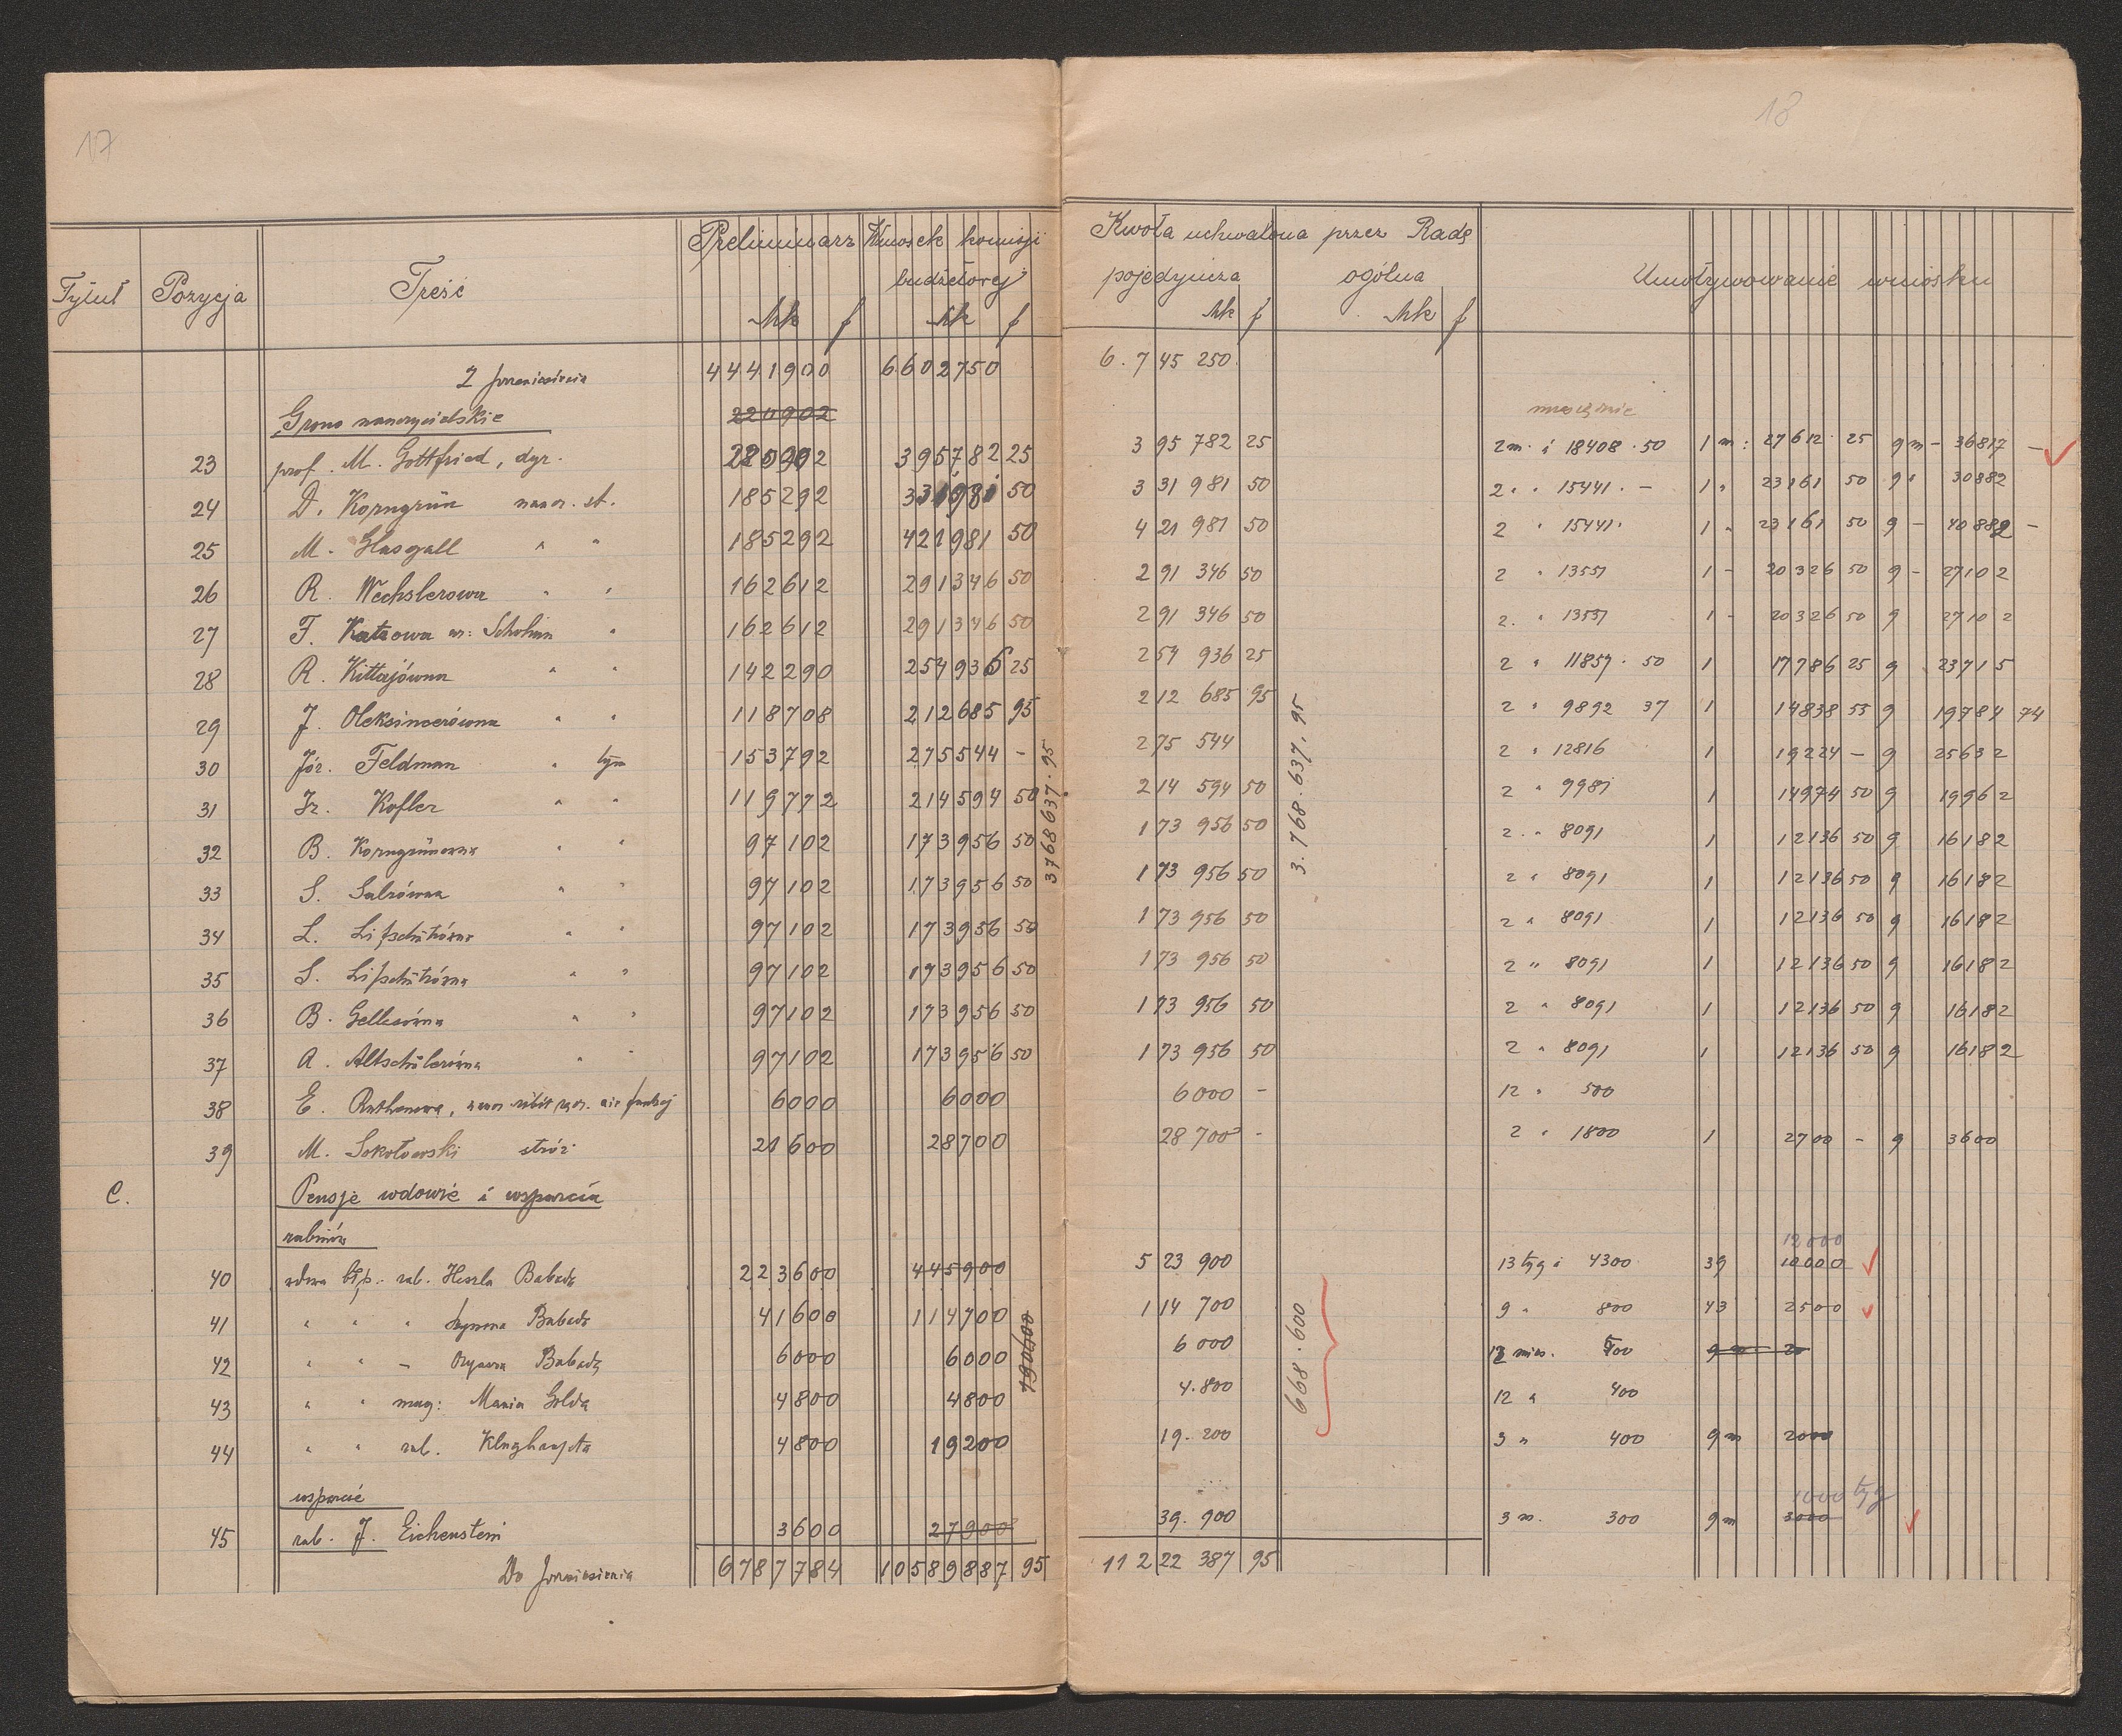 17
18
Tytuł Pozycja Treść Preliminarz Wniosek komisji budżetowej Kwota uchwalona przez Radę Umotywowanie wniosku
pojedyncza ogólna
Mk f Mk f Mk f Mk f
Z przeniesienia 4441900 6602750 6.745 250.
Grono nauczycielskie 220902 miesięcznie
23 prof. M. Gottfried, dyr. 220902 395782 25 395 782 25 2 m. i 18408.50 1 m: 27612.25 9 m - 36817 -
24 D. Korngrün naucz. st. 185292 331981 50 331 981 50 2 " 15441. - 1 " 23161 50 9 " 30882
25 M. Glasgall " " 185292 421981 50 421 981 50 2 " 15441. 1 " 23161 50 9 - 40882 -
26 R. Wechslerowa " " 162612 291346 50 291 346 50 2 " 13551 1 - 20326 50 9 - 27102
27 F. Katzowa " 162612 291346 50 291 346 50 2. " 13551 1 - 20326 50 9 27102
28 R. Kittajówna " " 142290 254936 25 254 936 25 2 " 11857.50 1 17786 25 9 23715
29 J. Oleksincerówna " " 118708 212685 95 212 685 95 2 " 9892 37 1 14838 55 9 19784 74
30 Józ. Feldman " tym 153792 275544 - 275 544 2 " 12816 1 19224 - 9 25632
31 Iz. Kofler " " 119772 214594 50 214 594 50 2 " 9981 1 14974 50 9 19962
32 B. Korngrünówna " " 97102 173956 50 173 956 50 2. " 8091 1 12136 50 9 16182
33 S. Salzówna " " 97102 173956 50 173 956 50 2 " 8091 1 12136 50 9 16182
34 L. Lifschützówna " " 97102 173956 50 173 956 50 2 " 8091 1 12136 50 9 16182
35 S. Lifschützówna " " 97102 173956 50 173 956 50 2 " 8091 1 12136 50 9 16182
36 B. Gellesówna " " 97102 173956 50 173 956 50 2 " 8091 1 12136 50 9 16182
37 A. Altschülerówna " " 97102 173956 50 173 956 50 2 " 8091 1 12136 50 9 16182
3768637.95
3.768.637.95
38 E. naucz. robót 6000 6000 6000 - 12 " 500
39 M. Sokołowski stróż 21600 28700 28 700 - 2 " 1800 1 2700 - 9 3600
C. Pensje wdowie i wsparcia
rabinów 12000
40 wdowa bł.p. rab. Heszla Babada 223600 445900 523 900 13 tyg i 4300 39 10000
41 " " " Szymona Babada 41600 114700 114 700 9 " 800 43 2500
42 " " - Babada 6000 6000 6 000 12 mies. 500 9 m 20
43 " " mag: Mania Golda 4800 4800 4.800 12 " 400
44 " " rab. Klughaupta 4800 19200 19.200 3 " 400 9 m 2000
590600
668.600
wsparcie 1000 tyg
45 rab. J. Eichenstein 3600 27900 39.900 3 m. 300 9 m 3000
Do przeniesienia 6787784 10589887 95 11 222 387 95